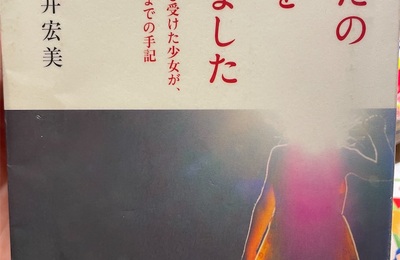 たの
を
ました
受けた少女が、
までの手記
井宏美